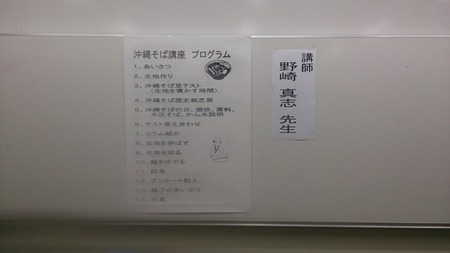 沖縄そば講座 プログラム
1、あいさつ
2、生地作り
3、沖縄そば豆テスト
(生地を寝かす時間)
4、沖縄そば歴史紙芝居
5、沖縄そばの日、現状、原料、
木灰そば、かん水説明
6、テスト答え合わせ
7、コラム紹介
8、生地を伸ばす
9、生地を切る
10、麺をゆでる
11、試食
12、アンケート記入
13、終了のあいさつ
講師
野崎 真志 先生